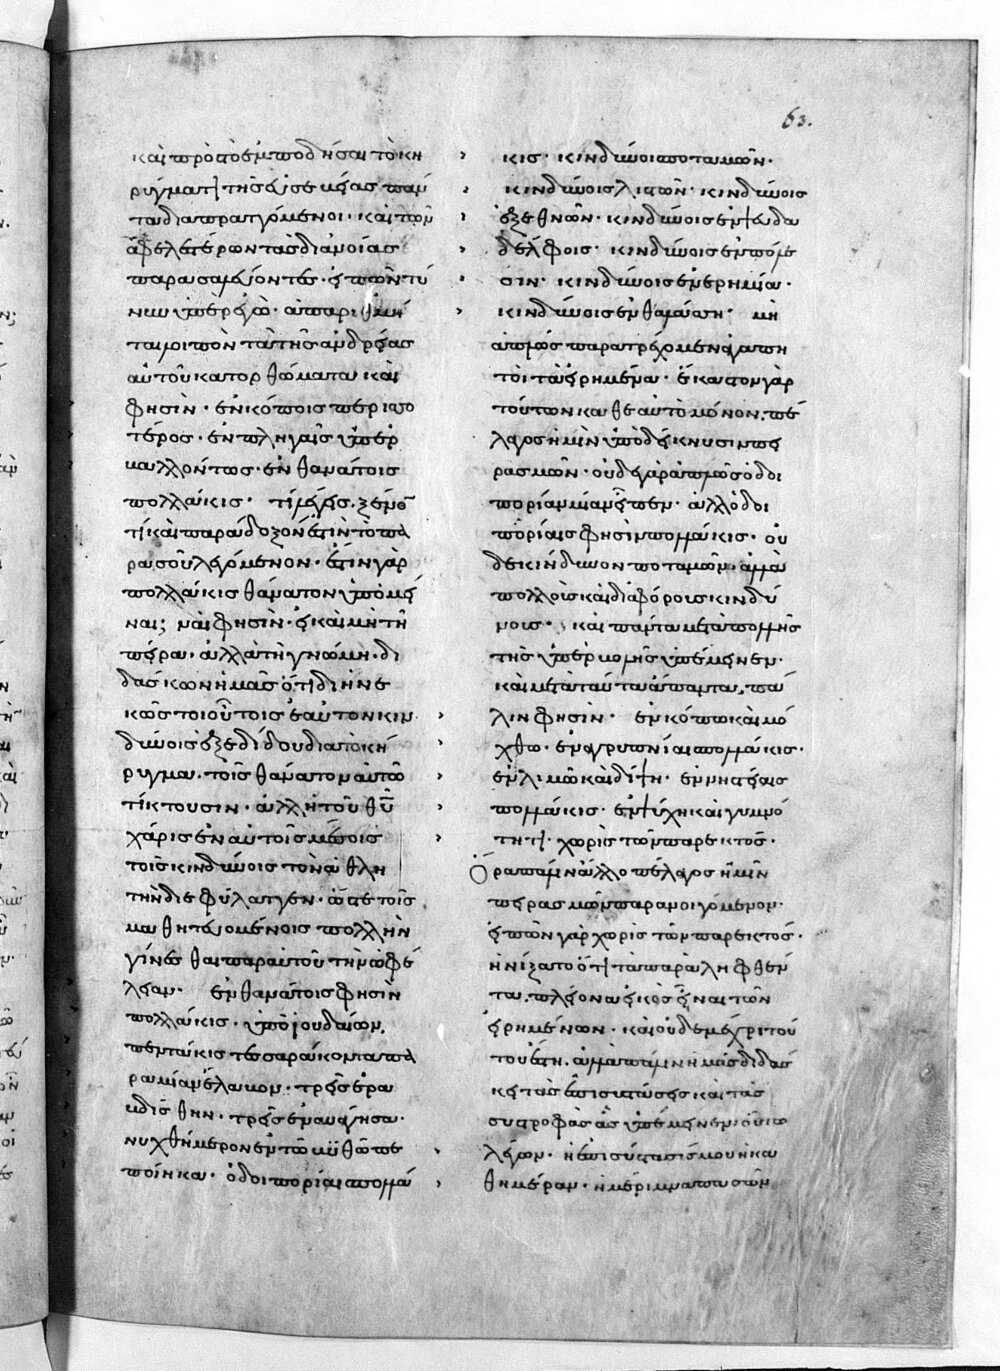 63.
καὶ πρὸς τὸ ἐμποδῆσαι τὸ κη
ρύγματι τῆς εὐσεβείας πάν
τα διαπραττόμενοι· καὶ τῶν
ἀφελεστέρων τὰς διανοίας
παρασαλεύοντες· εἰπὼν τύ
νων ὑπὲρ ἐγὼ· ἀπαριθμεῖ
ται λοιπὸν τὰ τῆς ἀνδρείας
αὐτοῦ κατορθώματα καὶ
φησὶν· ἐν κόποις περισσο
τέρως· ἐν πληγαῖς ὑπερ
βαλλόντως· ἐν θανάτοις
πολλάκις· τί λέγεις· ξένον
τί καὶ παράδοξόν ἐστιν τὸ πα
ρὰ σοῦ λεγόμενον· ἔστιν γὰρ
πολλάκις θάνατον ὑπομεῖ
ναι; ναί φησὶν· εἰ καὶ μὴ τῆ
πείρα· ἀλλὰ τῆ γνώμη· δι
δάσκων ἡμᾶς ὅτι διηνε
κῶς τοιούτοις ἑαυτὸν κιν
δύνοις ἐξεδίδου διὰ τὸ κή
ρυγμα· τοῖς θάνατον αὐτῶ
τίκτουσιν· ἀλλ' ἡ τοῦ θυ
χάρις ἐν αὐτοῖς μέσοις
τοῖς κινδύνοις τὸν ἀθλη
τὴν διεφύλαττεν· ὥστε τοῖς
μαθητευομένοις πολλὴν
γίνεσθαι παρ' αὐτοῦ τὴν ὠφέ
λειαν· ἐν θανάτοις φησὶν
πολλάκις· ὑπὸ ἰουδαίων,
πεντάκις τεσσαράκοντα πα
ρὰ μίαν ἔλαβον· τρεῖς ἐρα
βδίσθην· τρεῖς ἐναυάγησα·
νυχθήμερον ἐν τῶ βυθῶ πε
ποίηκα· ὁδοιπορίαις πολλά
κις· κινδύνοις ποταμῶν·
κινδύνοις λιστῶν· κινδύνοις
ἐξ ἐθνῶν· κινδύνοις ἐν ψευδα
δέλφοις· κινδύνοις ἐν πόλε
σιν· κινδύνοις ἐν ἐρημία·
κινδύνοις ἐν θαλάσση· μὴ
ἁπλῶς παρατρέχομεν ἀγαπη
τοὶ τὰ εἰρημένα· ἕκαστον γὰρ
τούτων καθ' ἑαυτὸ μόνον, πέ
λαγος ἡμῖν ὑποδείκνυσιν πει
ρασμῶν· οὐδὲ γὰρ ἁπλῶς ὁδοι
πορίαν μίαν εἶπεν· ἀλλ' ὁδοι
πορίαις φησὶν πολλάκις· οὐ
δὲ κίνδυνον ποταμῶν· ἀλλὰ
πολλοῖς καὶ διαφόροις κινδύ
νοις· καὶ πάντα μετὰ πολλῆς
τῆς ὑπερβολῆς ὑπέμεινεν·
καὶ μετὰ ταῦτα ἅπαντα, πά
λιν φησὶν· ἐν κόπω καὶ μό
χθω· ἐν ἀγρυπνίαις πολλάκις·
ἐν λιμῶ καὶ δίψη· ἐν νηστείαις
πολλάκις· ἐν ψύχη καὶ γυμνό
τητι· χωρὶς τῶν παρεκτός·
Ὅρα πάλιν ἄλλο πέλαγος ἡμῖν
πειρασμῶν παρανοιγόμενον·
εἰπὼν γὰρ χωρὶς τῶν παρεκτός·
ἠνίξατο ὅτι τὰ παραλειφθέν
τα, πλείονα εἰκὸς εἶναι τῶν
εἰρημένων· καὶ οὐδὲ μέχρι τού
του ἔστη· ἀλλὰ πάλιν ἡμᾶς διδάσ
κει τὰς ἐπισυστάσεις καὶ τὰς
συστροφὰς ἃς ὑπέμεινεν οὕτω
λέγων· ἡ ἐπισύστασίς μου ἡ κα
θημέραν· ἡ μέριμνα πασῶν